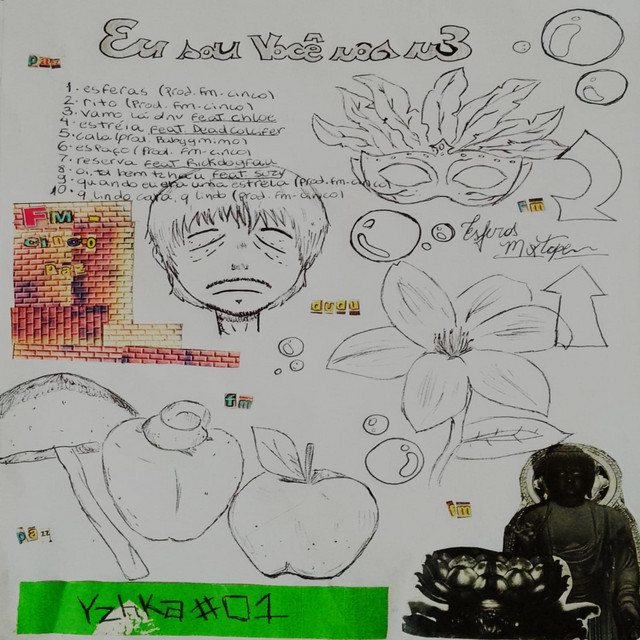 Eu sou Você nos n3
paz
1. esferas (Prod. Fm-cinco)
2. rito (Prod. Fm-cinco)
3. vamo lá dnv feat chloe
4. estréia feat Deadcollifer
5. cala (prod. Babygminho)
6. espaço (Prod. Fm-cinco)
7. reserva
8. o, tá bem tchau feat suzy
9. quando eu era uma estrela (prod. fm-cinco)
10. q lindo cara, q lindo (prod. fm-cinco)
fm
Esferas
Mixtape
FM-
cinco
paz
dudu
fm
fm
paz
YzhKa#01